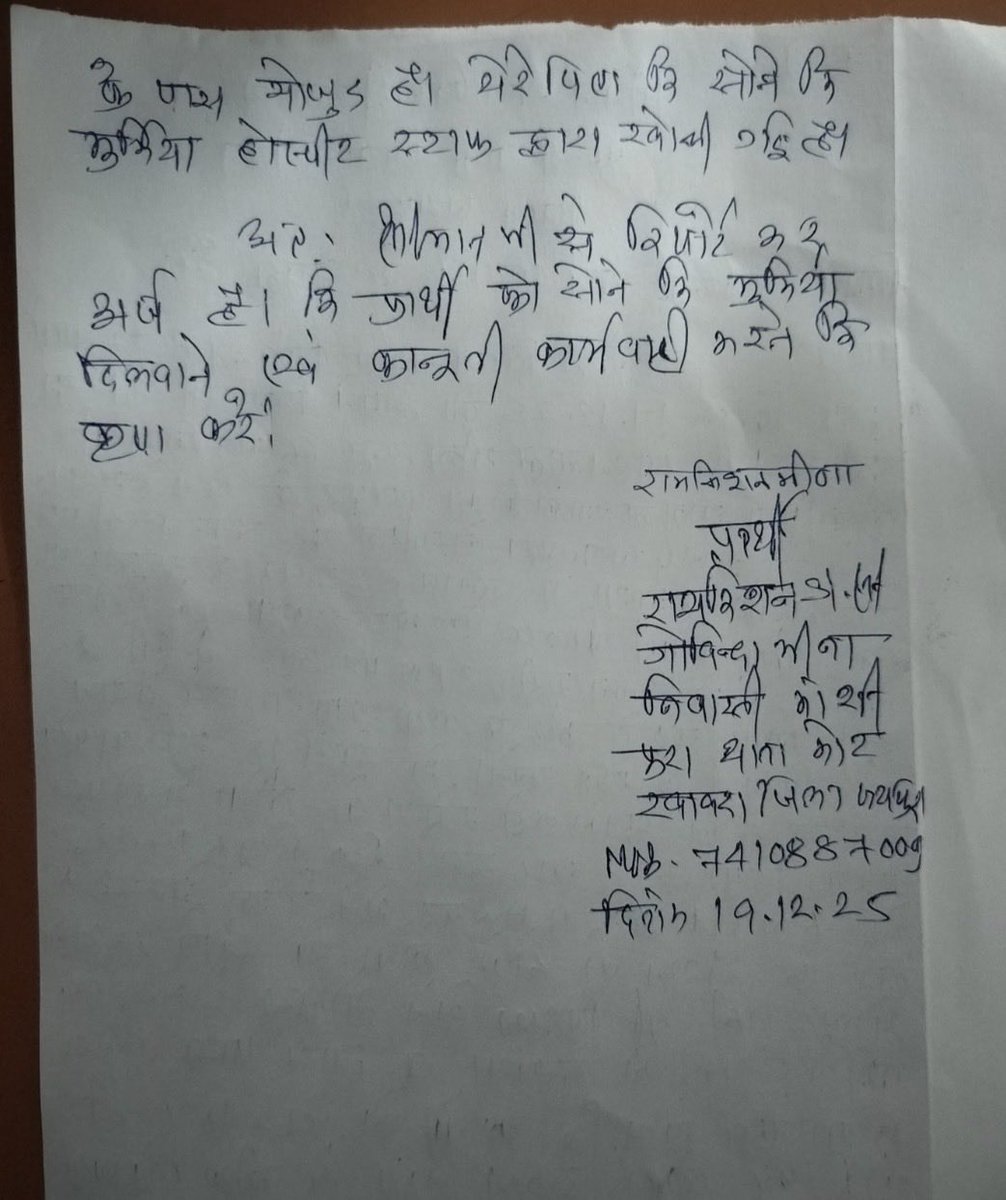 के पास मोजुद है। मेरे पिता कि सोने कि
मुर्किया होस्पीट स्टाफ द्वारा खोली गई है।
अतः श्रीमान जी से रिपोर्ट कर
अर्ज है। कि प्रार्थी को सोने कि मुर्किया
दिलवाने एवं कानूनी कार्यवाही करने कि
कृपा करें।
रामकिशन मीना
प्रार्थी
रामकिशन
गोविन्दा मीना
निवासी
थाना कोट
खावदा जिला जयपुर
Mob. 7410887009
दिनांक 19.12.25